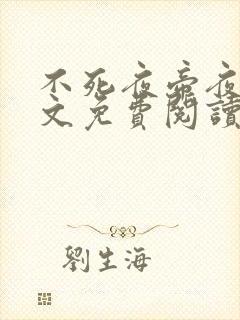 不死夜帝夜
文免費閱讀
劉生海